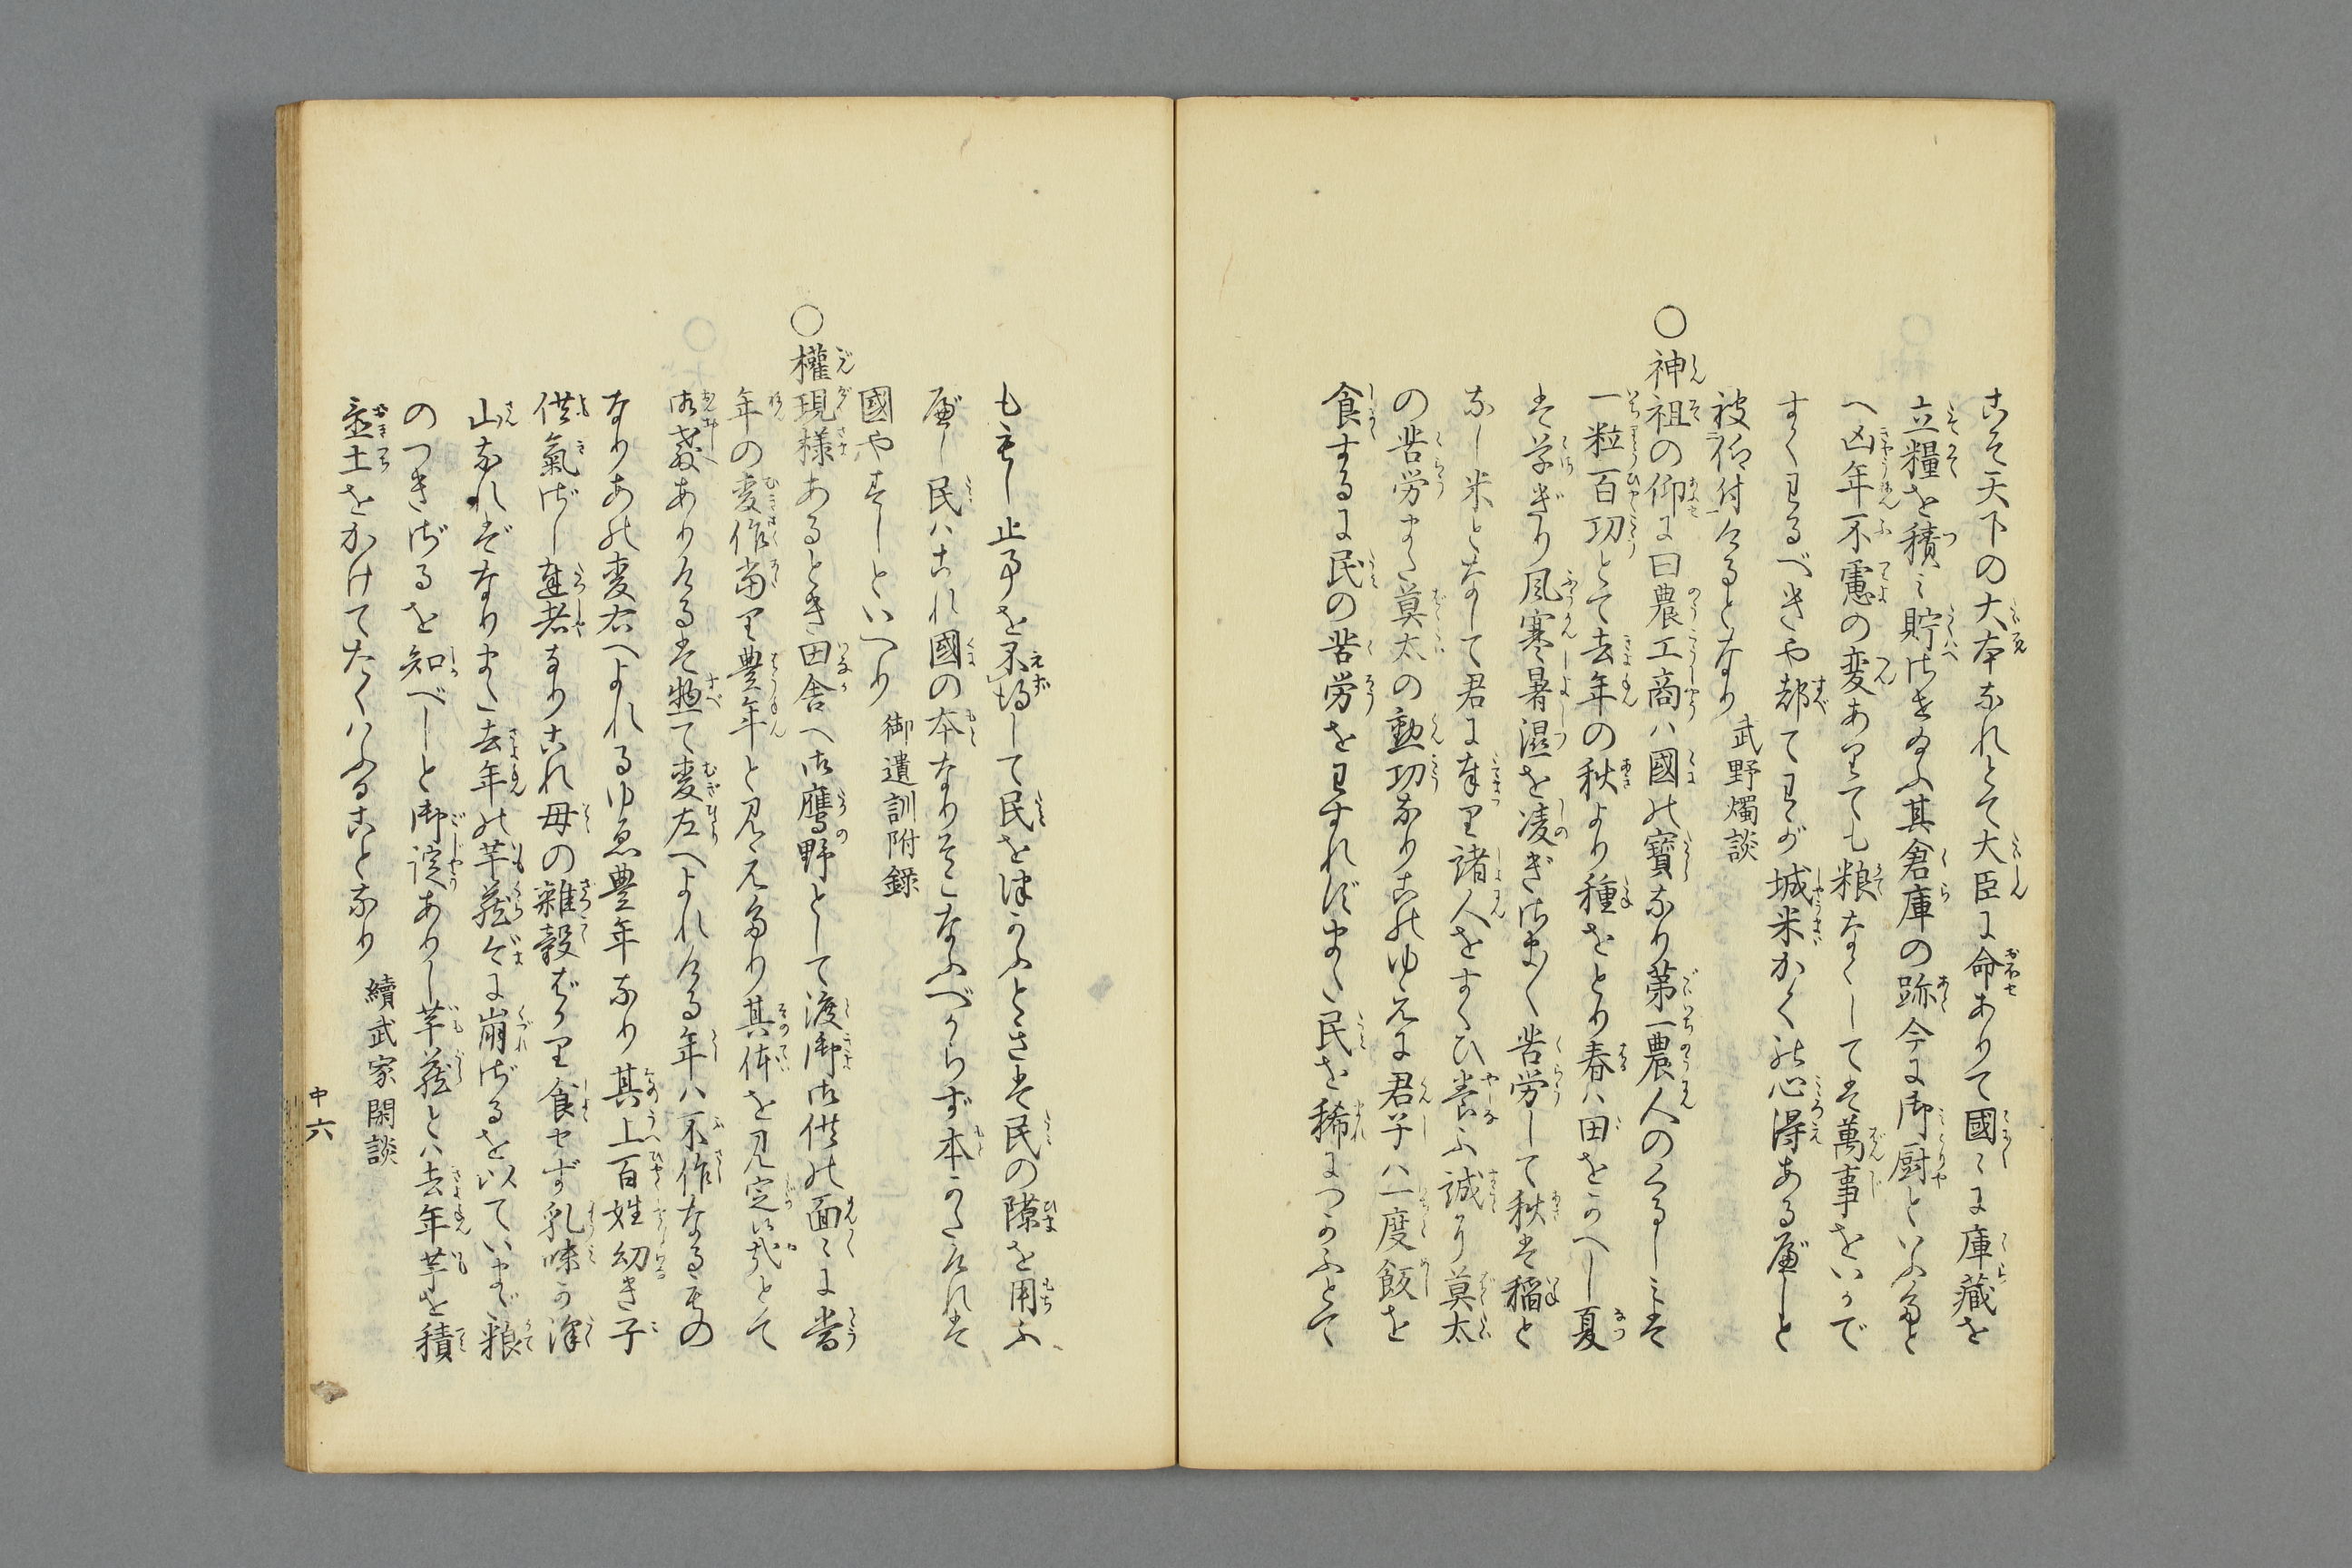 こそ天下の大本なれとて大臣に命ありて國〻に庫藏を
立糧を積ミ貯けさせ給ふ其倉庫の跡今に御厨といふなど
へ凶年不慮の変ありても粮なくしては萬事をいかで
すくわるべきや都てわが城米かくの心得あるべしと
被仰付けるとなり 武野燭談
○神祖の仰に曰農工商ハ國の寳なり第一農人のくるしミは
一粒百功とて去年の秋より種をとり春ハ田をかへし夏
は草ぎり風寒暑濕を凌ぎさま〳〵苦労して秋は稲と
なし米となして君に奉り諸人をすくひ養ふ誠に莫太
の苦労また莫太の勲功なりこのゆえに君子ハ一度飯を
食するに民の苦労をわすれずまた民を稀につかふとて
ももし止事を不得して民をつかふときは民の隙を用ふ
べし民ハこれ國の本なりそこなふべからず本かたければ
國やすしといへり 御遺訓附録
○權現様あるとき田舎へ御鷹野として渡御御供の面〻に當
年の麦作當り豊年と見えたり其体を見定候哉とて
御尋ありけるは惣て麦左へよれける年ハ不作なるもの
なりあの麦右へよれるゆゑ豊年なり其上百姓幼き子
供氣づし達者なりこれ母の雑穀ばかり食せず乳味か澤
山なれバなりまた去年の芋蔵ざに崩ざるを以ていまだ粮
のつきざるを知べしと御諚ありし芋蔵とハ去年芋を積
置土をかけてたくハふることなり 續武家閑談
中六